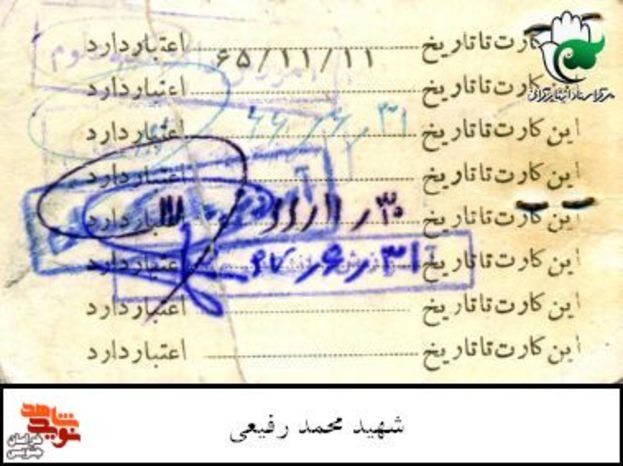 این کارت تا تاریخ ۶۵/۱۱/۱۱ اعتبار دارد
این کارت تا تاریخ اعتبار دارد
این کارت تا تاریخ ۶۶/۶/۳۱ اعتبار دارد
این کارت تا تاریخ اعتبار دارد
این کارت تا تاریخ اعتبار دارد
این کارت تا تاریخ ۶۷/۶/۳۱ اعتبار دارد
این کارت تا تاریخ اعتبار دارد
این کارت تا تاریخ اعتبار دارد
شهید محمد رفیعی
نوید شاهد
خراسان جنوبی